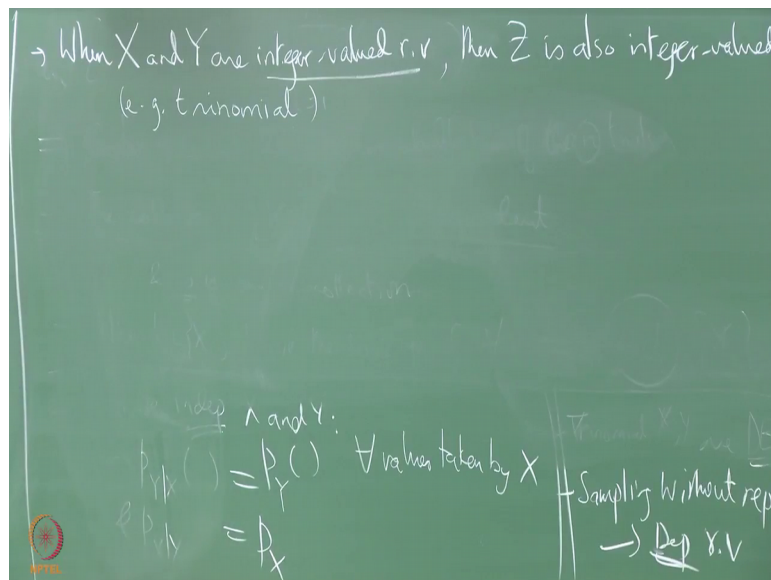 → When X and Y are integer-valued r.v, then Z is also integer-valued
(e.g. trinomial)
=
indep X and Y:
P_{Y|X}( ) = P_Y( ) ∀ values taken by X
& P_{X|Y} = P_X
Trinomial X, Y are
Sampling Without rep
→ Dep r.v
NPTEL